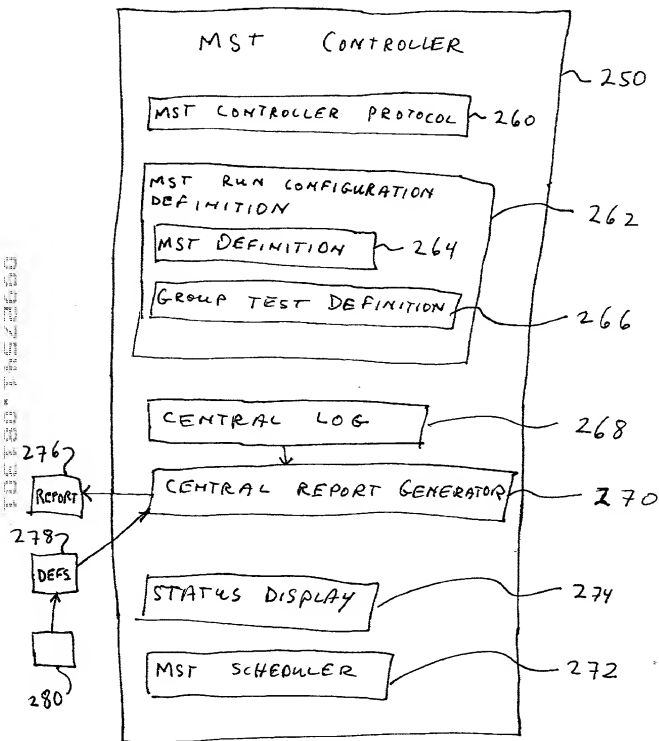 MST CONTROLLER
250
MST CONTROLLER PROTOCOL
260
MST RUN CONFIGURATION
DEFINITION
262
MST DEFINITION
264
GROUP TEST DEFINITION
266
CENTRAL LOG
268
276
REPORT
CENTRAL REPORT GENERATOR
270
278
DEFS.
STATUS DISPLAY
274
MST SCHEDULER
272
280